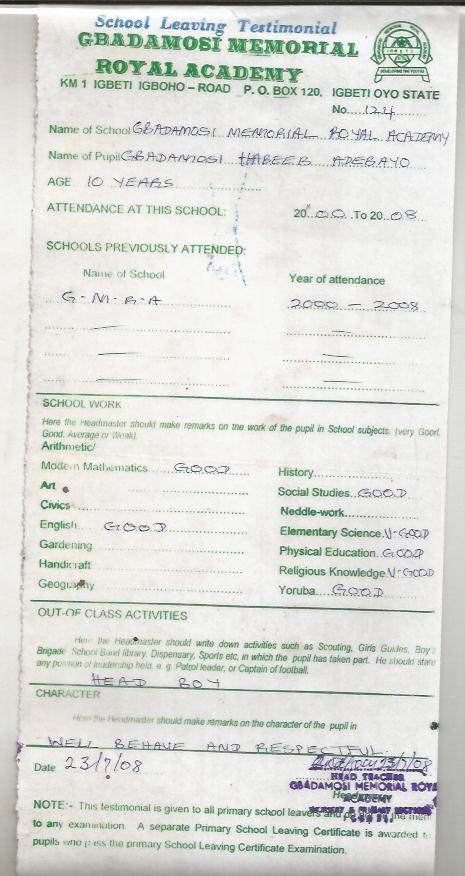 School Leaving Testimonial
GBADAMOSI MEMORIAL
ROYAL ACADEMY
KM 1 IGBETI IGBOHO – ROAD P. O. BOX 120, IGBETI OYO STATE
No. 124
Name of School GBADAMOSI MEMORIAL ROYAL ACADEMY
Name of Pupil GBADAMOSI HABEEB ADEBAYO
AGE 10 YEARS
ATTENDANCE AT THIS SCHOOL: 20 00 To 20 08
SCHOOLS PREVIOUSLY ATTENDED:
Name of School Year of attendance
G-M-R-A 2000 – 2008
SCHOOL WORK
Here the Headmaster should make remarks on the work of the pupil in School subjects. (very Good,
Good, Average or Weak).
Arithmetic/
Modern Mathematics GOOD
Art
Civics
English GOOD
Gardening
Handicraft
Geography
History
Social Studies GOOD
Neddle-work
Elementary Science V-GOOD
Physical Education GOOD
Religious Knowledge V-GOOD
Yoruba GOOD
OUT-OF CLASS ACTIVITIES
Here the Headmaster should write down activities such as Scouting, Girls Guides, Boy's
Brigade School Band library, Dispensary, Sports etc, in which the pupil has taken part. He should state
any position of leadership held. e.g. Patrol leader, or Captain of football.
HEAD BOY
CHARACTER
Here the Headmaster should make remarks on the character of the pupil in
WELL BEHAVE AND RESPECTFUL
Date 23/7/08
23/7/08
HEAD TEACHER
GBADAMOSI MEMORIAL ROYA
ACADEMY
NURSERY & PRIMARY SECTION
NOTE:- This testimonial is given to all primary school leavers and
to any examination. A separate Primary School Leaving Certificate is awarded
pupils who pass the primary School Leaving Certificate Examination.